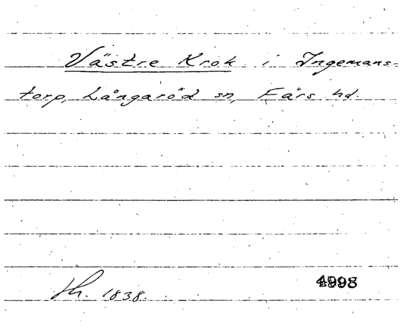 Västre Krok i Ingemans-
torp, Långaröd sn, Färs hd.
Th. 1838.
4998